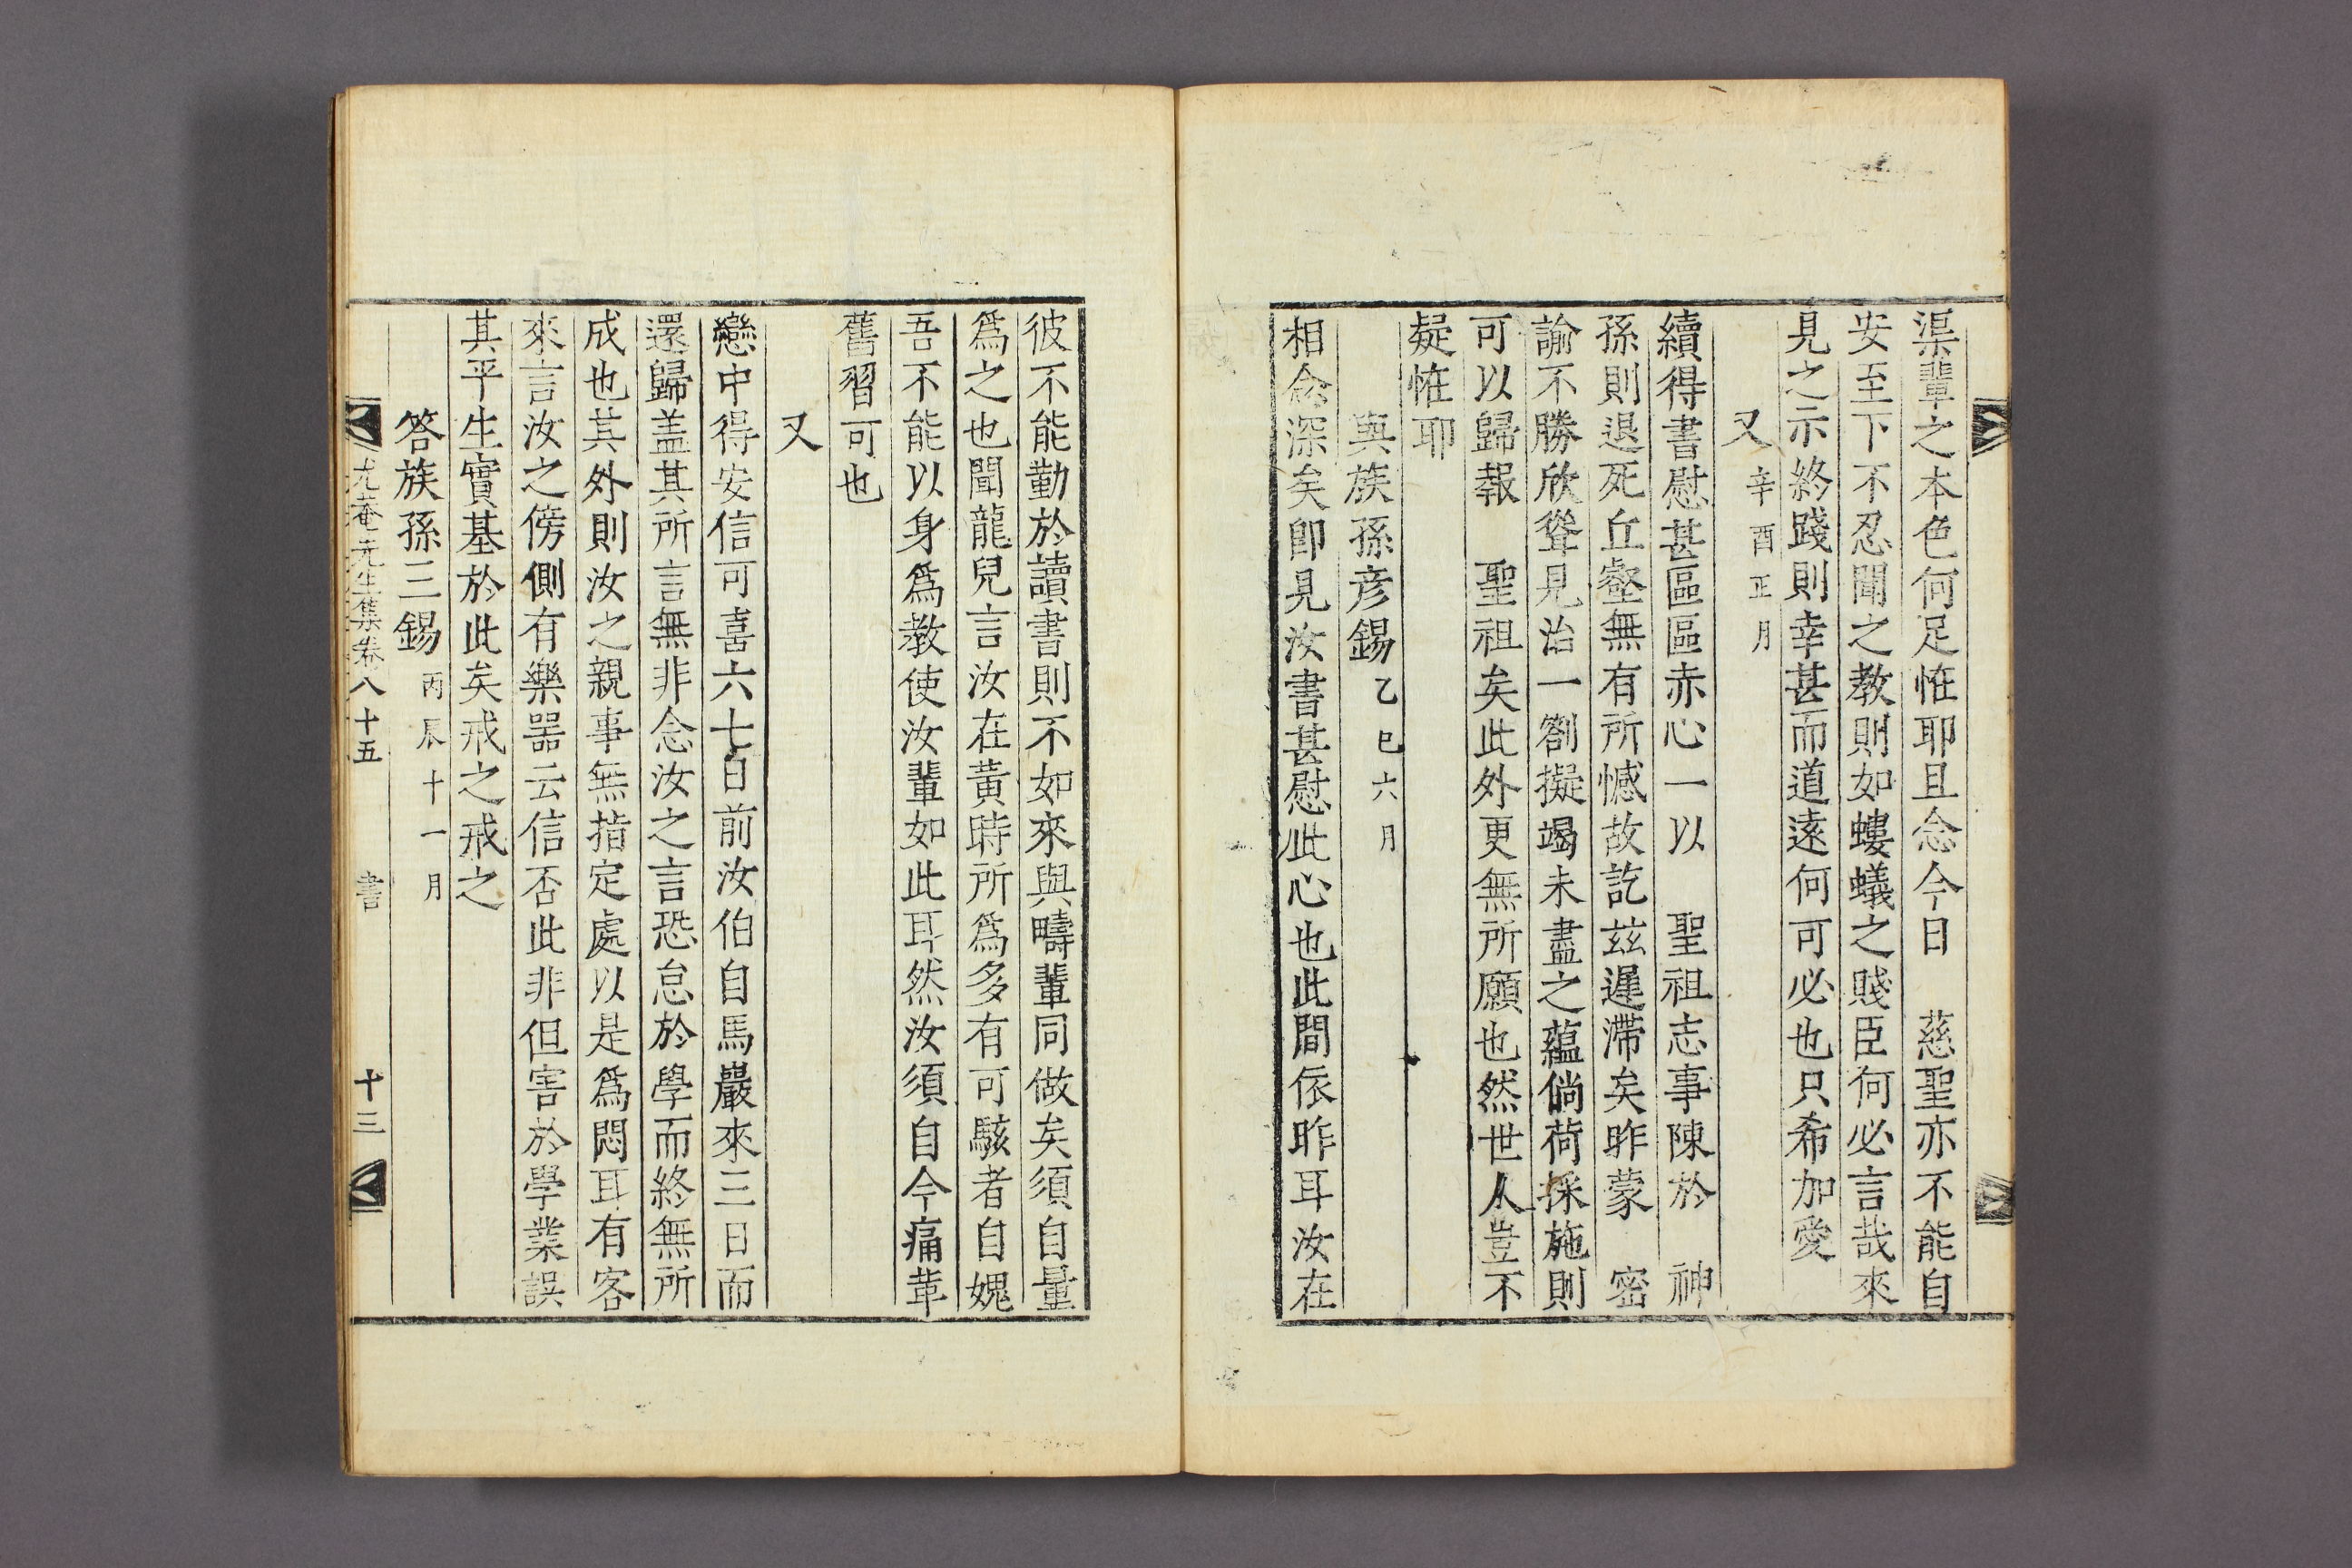 渠輩之本色何足恠耶且念今日　慈聖亦不能自
安至下不忍聞之敎則如螻蟻之賤臣何必言哉來
見之示終踐則幸甚而道遠何可必也只希加愛
又 辛酉正月
續得書慰甚區區赤心一以　聖祖志事陳於　神
孫則退死丘壑無有所憾故訖玆遲滯矣昨蒙　密
諭不勝欣聳見治一劄擬竭未盡之蘊倘荷採施則
可以歸報　聖祖矣此外更無所願也然世人豈不
疑恠耶
與族孫彥錫 乙巳六月
相念深矣卽見汝書甚慰此心也此間依昨耳汝在
彼不能勤於讀書則不如來與疇輩同做矣須自量
爲之也聞龍兒言汝在黃時所爲多有可駭者自媿
吾不能以身爲敎使汝輩如此耳然汝須自今痛革
舊習可也
又
戀中得安信可喜六七日前汝伯自馬巖來三日而
還歸盖其所言無非念汝之言恐怠於學而終無所
成也其外則汝之親事無指定處以是爲悶耳有客
來言汝之傍側有樂器云信否此非但害於學業誤
其平生實基於此矣戒之戒之
答族孫三錫 丙辰十一月
尤菴先生集卷八十五　書　十三